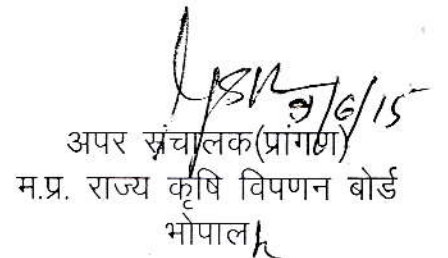 9/6/15
अपर संचालक(प्रांगण)
म.प्र. राज्य कृषि विपणन बोर्ड
भोपाल